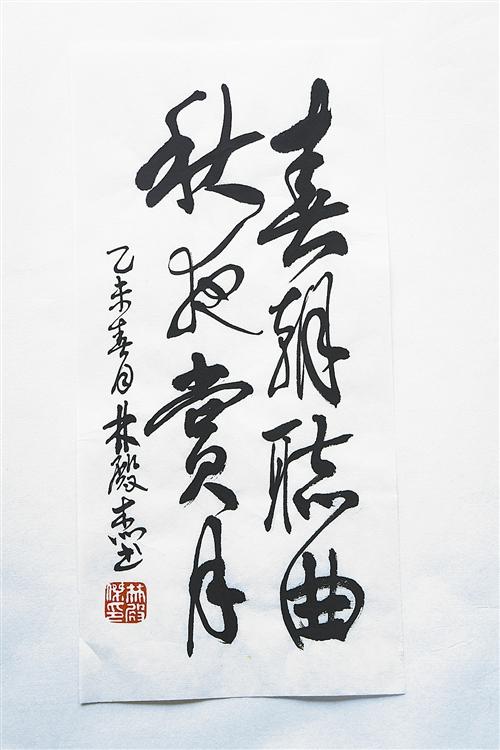 春朝聽曲
秋夜賞月
乙未春月林殿杰书
林殿傑印